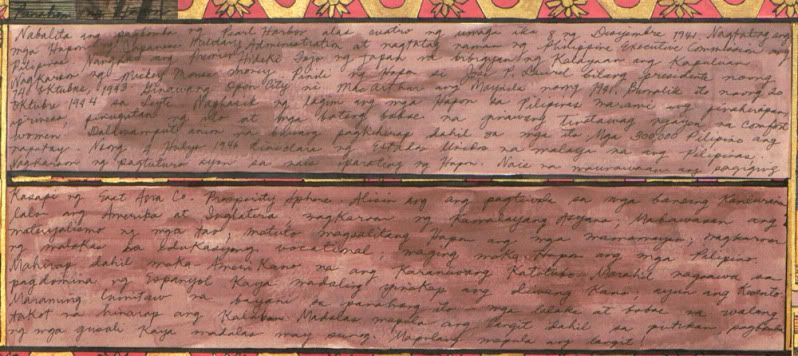 Nabalita ang pagbomba ng Pearl Harbor alas cuatro ng umaga ika 8 ng Disyembre 1941. Nagtatag ang
mga Hapon ng Japanese Military Administration at nagtatag naman ng Philippine Executive Commission ang
Pilipino. Nangako ang Premier Hideki Tojo ng Japan na bibigyan ng Kalayaan ang Kapuluan.
Nagkaroon ng Mickey Mouse money. Pinili ng Hapon si José P. Laurel bilang presidente noong
14 Oktubre, 1943. Ginawang Open City ni MacArthur ang Maynila noong 1941. Bumalik ito noong 20
Oktubre 1944 sa Leyte. Naghasik ng lagim ang mga Hapon sa Pilipinas marami ang pinahirapan
pinugutan ng ulo at mga batang babae na ginawang tinatawag ngayon na Comfort
women. Dalawampu't anim na buwang paghihirap dahil sa mga ito. Mga 500,000 Pilipino ang
napatay. Noong 4 Hulyo 1946 dineclara ng Estados Unidos na malaya na ang Pilipinas.
Nagkaroon ng pagtuturo ayon sa nais iparating ng Hapon. Nais na maunawaan ang pagiging
Kasapi ng East Asia Co-Prosperity Sphere. Alisin ang ang pagtiwala sa mga bansang Kanluranin
lalo ang Amerika at Inglatera, magkaroon ng Kamalayang Asyano, Mabawasan ang
materyalismo ng mga tao, matuto magsalitang Hapon ang mga mamamayan, magkaroon
ng malakas na Edukasyong vocational, maging maka Hapon ang mga Pilipino.
Mahirap dahil maka Amerikano na ang Karaniwang Katutubo. Marahil nagsawa sa
pagdomina ng Espanyol Kaya madaling yinakap ang diwang Kano, ayun ang kwento.
Maraming lumitaw na bayani sa panahong ito - mga lalake at babae na walang
takot na hinarap ang Kalaban. Madalas mapula ang langit dahil sa putukan pagbomba
ng mga gusali Kaya madalas may sunog. Mapulang mapula ang langit!